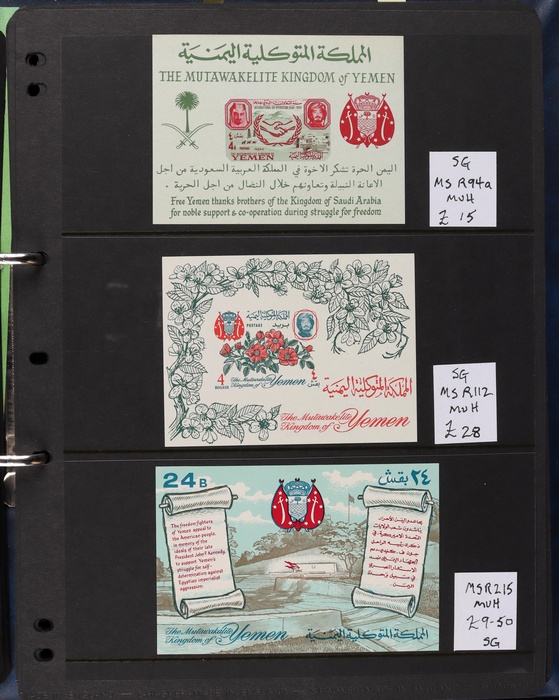 المملكة المتوكلية اليمنية
THE MUTAWAKELITE KINGDOM of YEMEN
4B
YEMEN
اليمن الحرة تشكر الاخوة في المملكة العربية السعودية من اجل
الاعانة النبيلة وتعاونهم خلال النضال من اجل الحرية .
Free Yemen thanks brothers of the Kingdom of Saudi Arabia
for noble support & co-operation during struggle for freedom
SG
MS R94a
MUH
£15
المملكة المتوكلية اليمنية
POSTAGE بريد
4
BOGSHAH
The Mutawakelite Kingdom of Yemen
٤
بقش
المملكة المتوكلية اليمنية
The Mutawakelite
Kingdom of Yemen
SG
MS R112
MUH
£28
24 B
٢٤ بقش
The freedom fighters
of Yemen appeal to
the American people,
in memory of the
ideals of their late
President John F. Kennedy,
to support Yemen's
struggle for self-
determination against
Egyptian imperialist
aggression.
The Mutawakelite
Kingdom of Yemen
المملكة المتوكلية اليمنية
MSR215
MUH
£9-50
SG